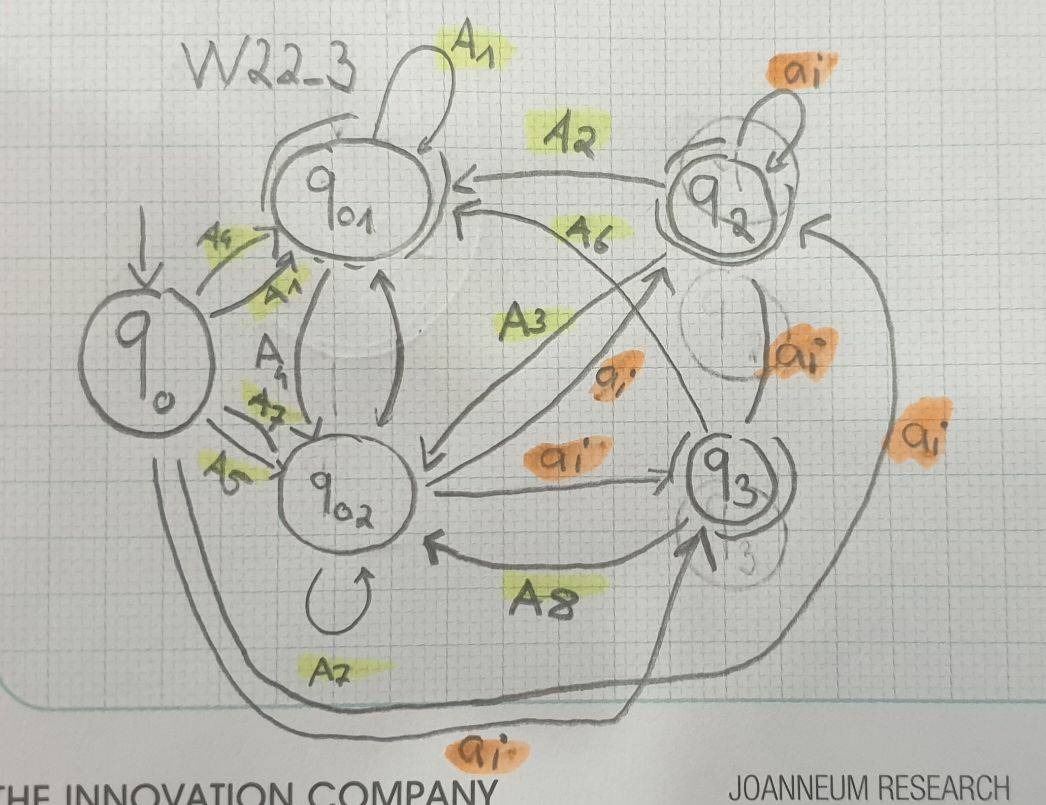 W22-3
A1
ai
A2
q01
q2
A4
A6
A1
q0
A3
A4
ai
ai
A7
ai
ai
A5
q02
q3
A8
A7
ai
THE INNOVATION COMPANY
JOANNEUM RESEARCH